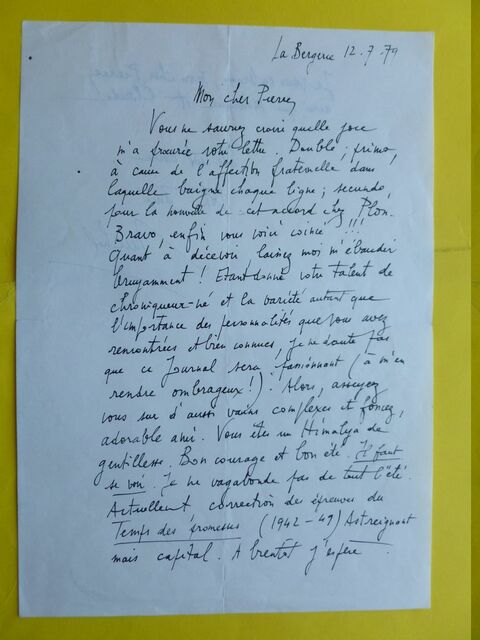 La Bergerie 12.7.79
Mon cher Pierre,
Vous ne sauriez croire quelle joie
m'a procurée votre lettre. Double; primo,
à cause de l'affection fraternelle dans
laquelle baigne chaque ligne; secundo,
pour la nouvelle de cet accord chez Plon.
Bravo, enfin vous voici coincé !!!
Quant à décevoir, laissez moi m'ébaudir
bruyamment ! Etant donné votre talent de
chroniqueur-né et la variété autant que
l'importance des personnalités que vous avez
rencontrées et bien connues, je ne doute pas
que ce Journal sera passionnant (à m'en
rendre ombrageux !). Alors, asseyez
vous sur d'aussi vains complexes et foncez,
adorable ami. Vous êtes un Himalaya de
gentillesse. Bon courage et bon été. Il faut
se voir. Je ne vagabonde pas de tout l'été.
Actuellement correction des épreuves du
Temps des promesses (1942-49) Astreignant
mais capital. A bientôt j'espère